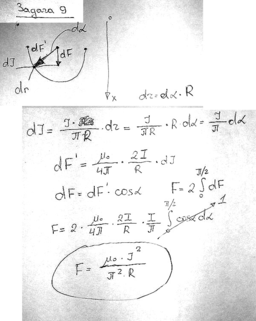 Задача 9
dα
dF' dF
dI
dr
0
x
dr = dα · R
dI = I · / πR · dr = I / πR · R dα = I / π dα
dF' = μ₀ / 4π · 2I / R · dI
dF = dF' · cosα F = 2 ∫₀^π/2 dF
F = 2 · μ₀ / 4π · 2I / R · I / π ∫₀^π/2 cosα dα 1
F = μ₀ · I² / π² · R